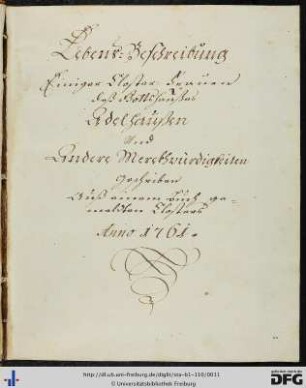 Lebens-Beschreibung
Einiger Closter-Frauen
deß Gottshaußes
Adelhaußen
Und
Andere Merckwürdigkeiten
Geschriben
Auß einem buch ge-
meldten Closters
Anno 1761.
http://dl.ub.uni-freiburg.de/diglit/sta-b1-110/0011
© Universitätsbibliothek Freiburg
gefördert durch die
DFG